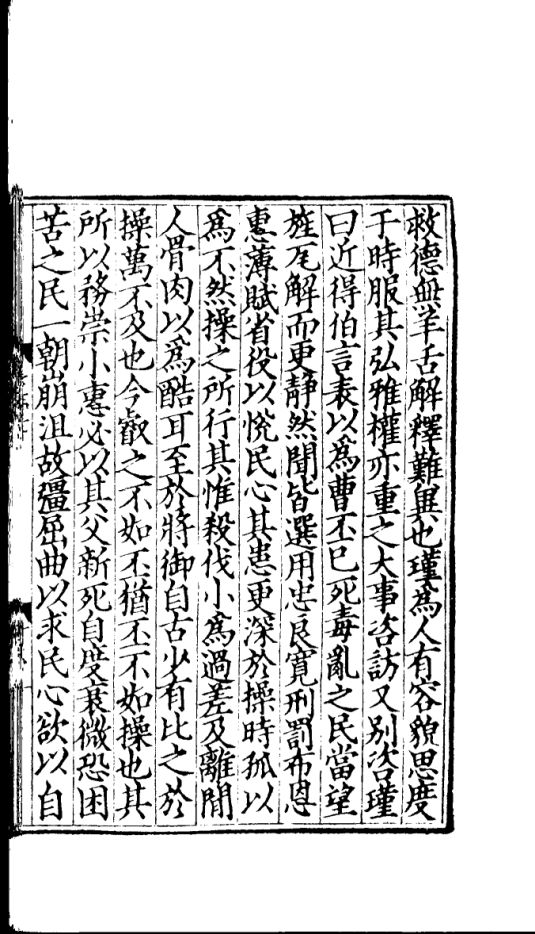 救德無羊舌解釋難與也瑾爲人有容貌思度
于時服其弘雅權亦重之大事咨訪又別咨瑾
曰近得伯言表以爲曹丕已死毒亂之民當望
旌瓦解而更静然聞皆選用忠良寛刑罰布恩
惠薄賦省役以恱民心其患更深於操時孤以
爲不然操之所行其惟殺伐小爲過差及離間
人骨肉以爲酷耳至於將御自古少有比之於
操萬不及也今叡之不如丕猶丕不如操也其
所以務崇小惠必以其父新死自度衰微恐困
苦之民一朝崩沮故彊屈曲以求民心欲以自